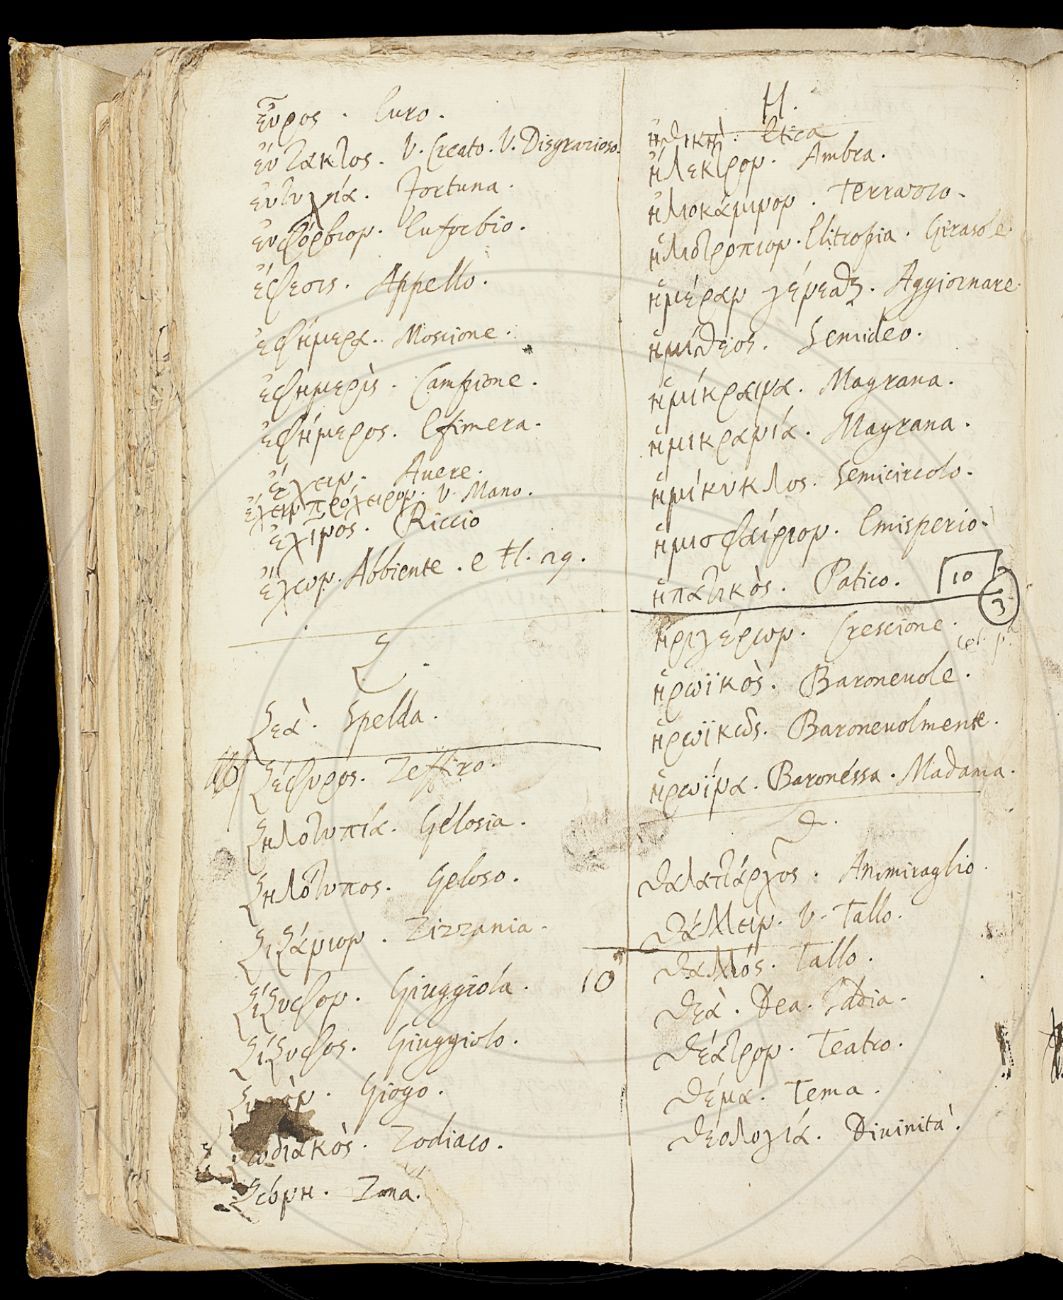 εὖρος. Euro.
εὔτακτος. V. Creato. V. Disgrazioso.
εὐτυχία. Fortuna.
εὐφόρβιον. Euforbio.
ἔφεσις. Appello.
ἐφήμερα. Moscione.
ἐφημερὶς. Campione.
ἐφήμερος. Efimera.
ἔχειν. Auere.
ἔχειν πρόχειρον. V. Mano.
ἐχῖνος. Riccio
ἔχων. Abbiente. e tt. ag.
Ζ.
ζεὰ. Spelda.
ζέφυρος. Zeffiro.
ζηλοτυπία. Gelosia.
ζηλότυπος. Geloso.
ζιζάνιον. Zizzania.
ζίζυφον. Giuggiola.
ζίζυφος. Giuggiolo.
Giogo.
ζωδιακὸς. Zodiaco.
ζώνη. Zona.
H.
ἠθικὴ. Etica
ἤλεκτρον. Ambra.
ἡλιοκάμινον. Terrazzo.
ἡλιοτρόπιον. Elitropia. Girasole.
ἡμέραν γένεσθαι. Aggiornare.
ἡμίθεος. Semideo.
ἡμίκραινα. Magrana.
ἡμικρανία. Magrana.
ἡμίκυκλος. Semicircolo.
ἡμισφαίριον. Emisperio.
ἡπατικὸς. Patico. 10
3
ἠριγέρων. Crescione.
ἡρωϊκὸς. Baroneuole.
ἡρωϊκῶς. Baroneuolmente.
ἡρωΐνα. Baronessa. Madama.
θ.
θαλαττάρχος. Ammiraglio.
θάλλειν. V. Tallo.
θαλλός. Tallo.
10
θεὰ. Dea. Iddia.
θέατρον. Teatro.
θέμα. Tema.
θεολογία. Diuinità.